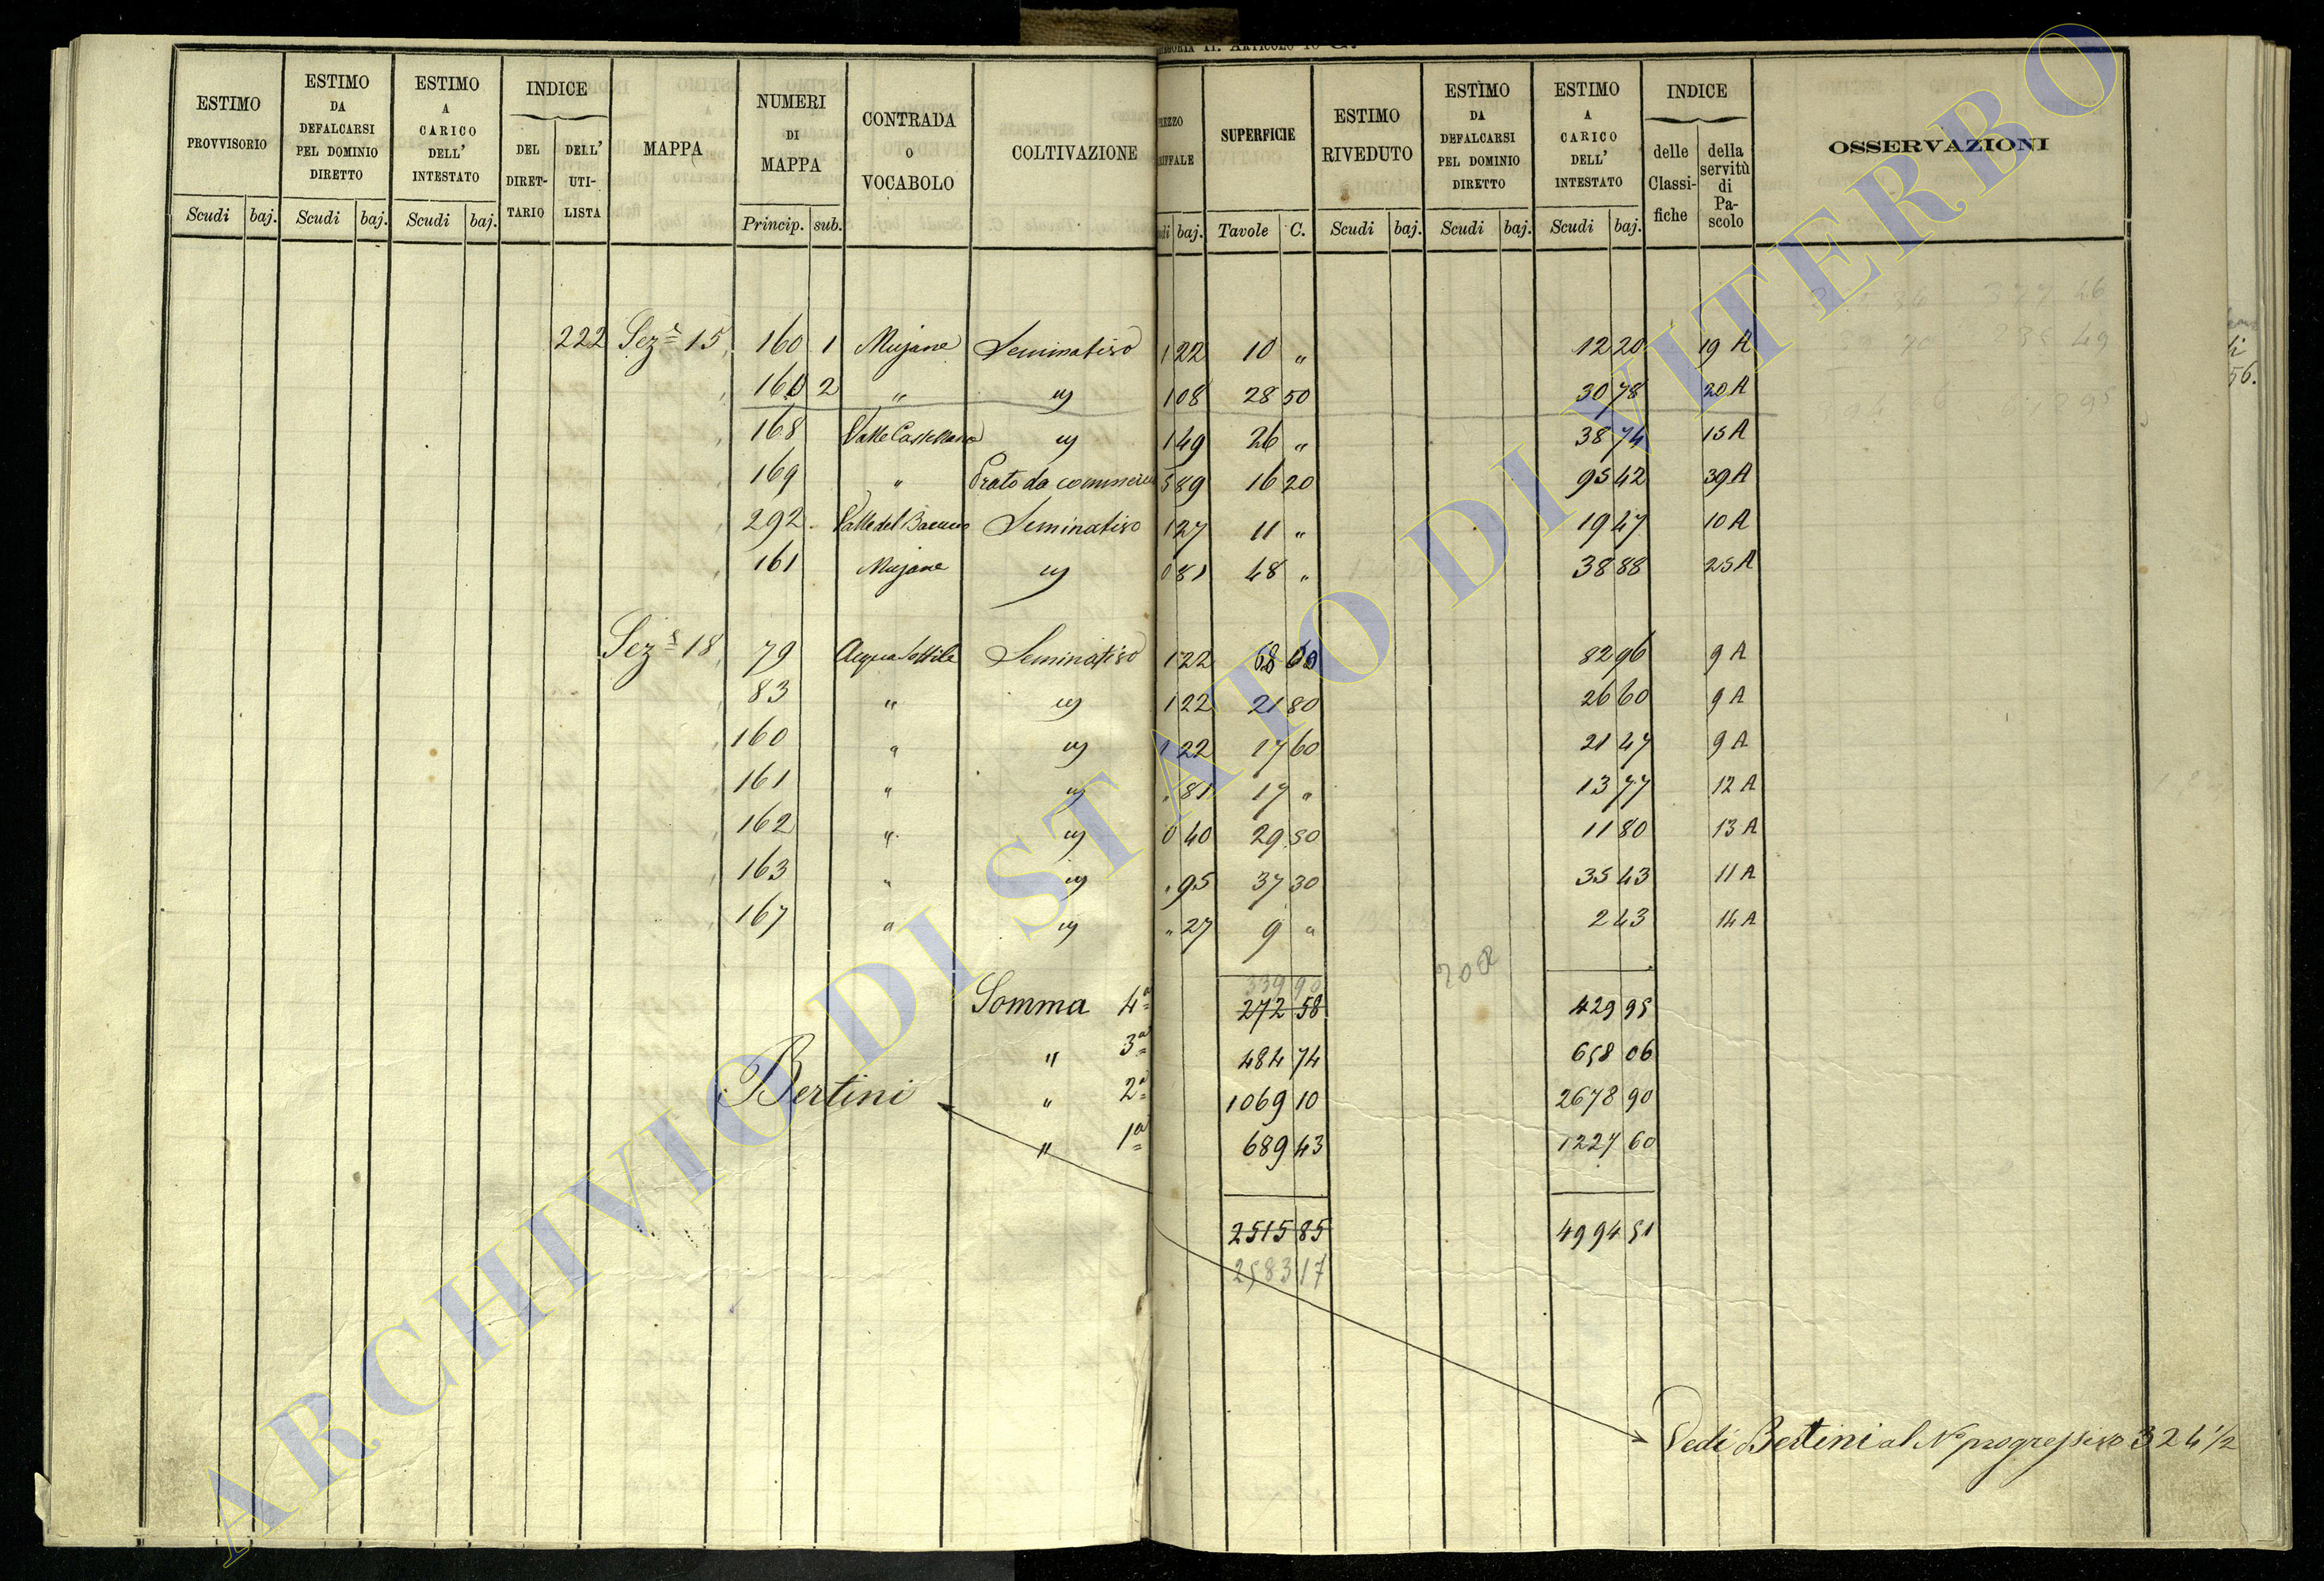 ARTICOLO
ESTIMO PROVVISORIO Scudi baj.
ESTIMO DA DEFALCARSI PEL DOMINIO DIRETTO Scudi baj.
ESTIMO A CARICO DELL' INTESTATO Scudi baj.
INDICE DEL DIRET-TARIO DELL' UTI-LISTA
MAPPA
NUMERI DI MAPPA Princip. sub.
CONTRADA O VOCABOLO
COLTIVAZIONE
baj.
SUPERFICIE Tavole C.
ESTIMO RIVEDUTO Scudi baj.
ESTIMO DA DEFALCARSI PEL DOMINIO DIRETTO Scudi baj.
ESTIMO A CARICO DELL' INTESTATO Scudi baj.
INDICE delle Classi-fiche della servitù di Pa-scolo
OSSERVAZIONI
222 Sez.e 15 160 1 Mujane Seminativo 1 22 10 " 12 20 19 A
160 2 " " 1 08 28 50 30 78 20 A
168 Valle Castellana " 1 49 26 " 38 74 15 A
169 " Prato da 5 89 16 20 95 42 39 A
292 Valle del Seminativo 1 27 11 " 19 47 10 A
161 Mujane " 0 81 48 " 38 88 25 A
Sez.e 18 79 Acqua Sottile Seminativo 1 22 68 60 82 96 9 A
83 " " 1 22 21 80 26 60 9 A
160 " " 1 22 17 60 21 47 9 A
161 " " " 81 17 " 13 77 12 A
162 " " 0 40 29 50 11 80 13 A
163 " " " 95 37 30 35 43 11 A
167 " " " 27 9 " 2 43 14 A
339 90
Somma 4a 272 58 429 95
" 3a 484 74 658 06
Bertini " 2a 1069 10 2678 90
" 1a 689 43 1227 60
2515 85 4994 51
2583 17
Vedi Bertini al No progressivo 324 1/2
ARCHIVIO DI STATO DI VITERBO